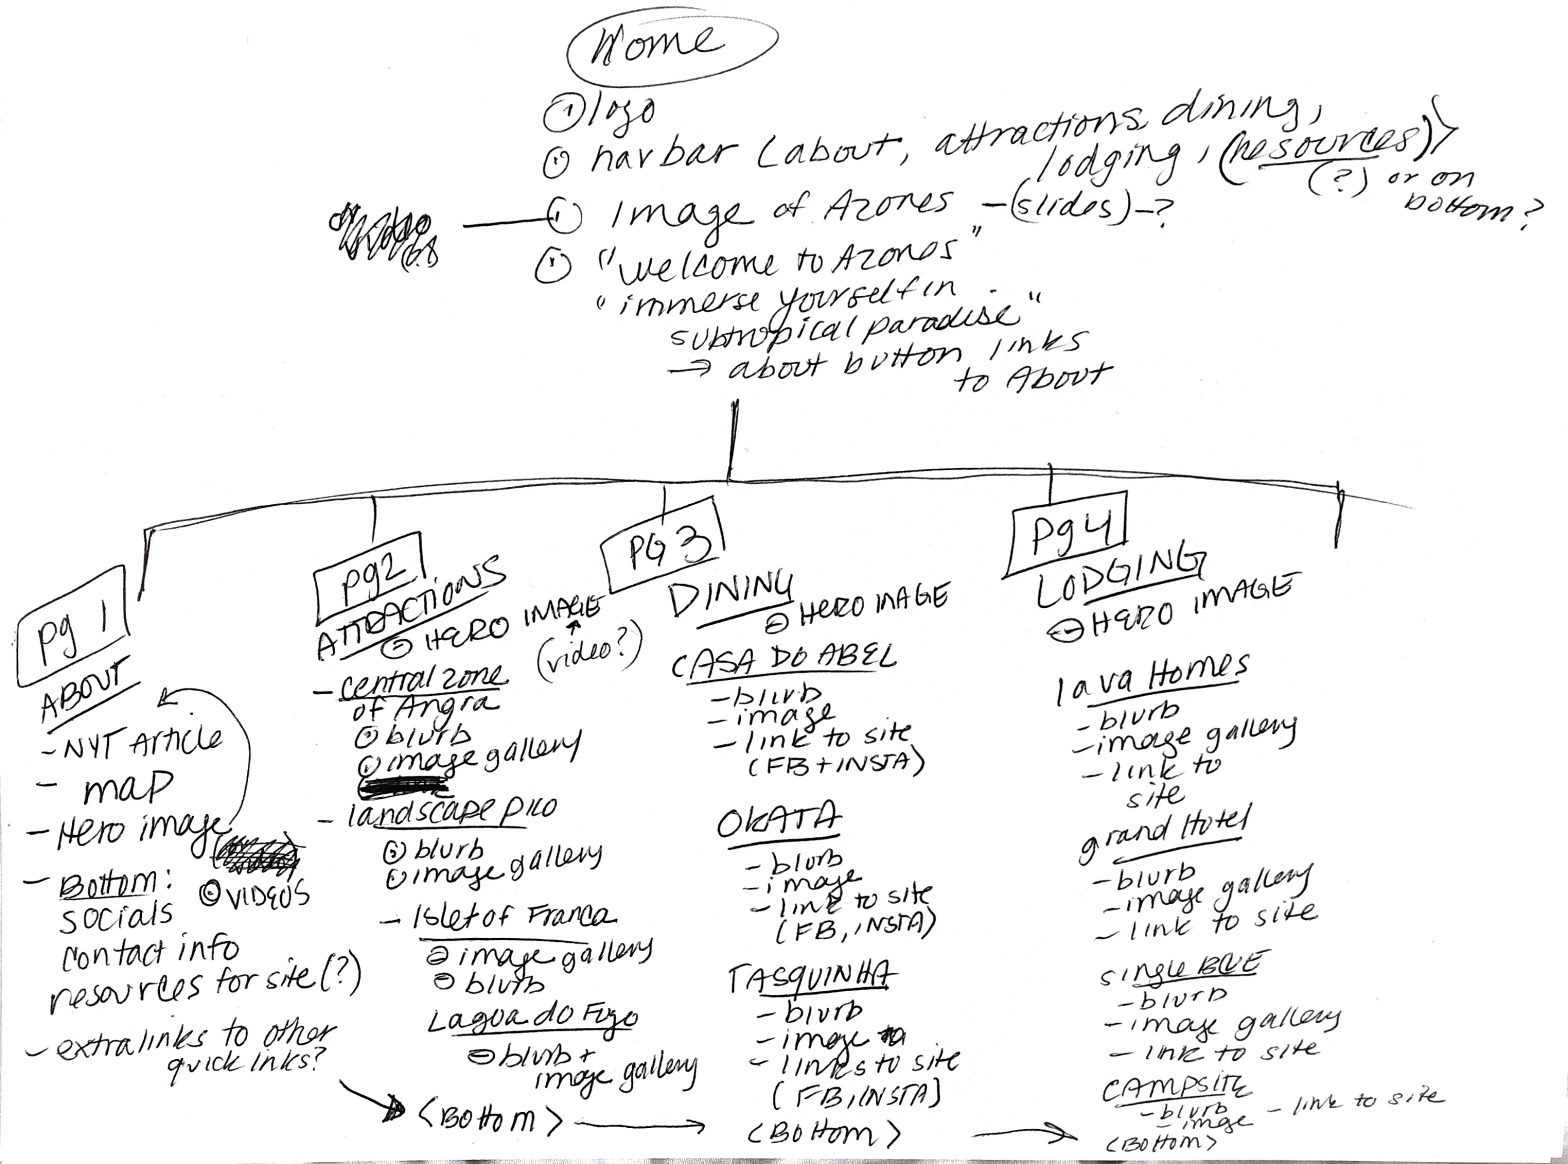 Home
① logo
① navbar (about, attractions, dining,
lodging, (resources))
(?) or on
bottom?
① Image of Azores - (slides) - ?
① "Welcome to Azores"
"immerse yourself in
subtropical paradise"
→ about button links
to About
pg 1
ABOUT
- NYT Article
- map
- Hero image
- Bottom:
VIDEOS
socials
contact info
resources for site (?)
- extra links to other
quick links?
pg 2
ATTRACTIONS
HERO IMAGE
(video?)
- central zone
of Angra
blurb
image gallery
- landscape pico
blurb
image gallery
- Islet of Franca
image gallery
blurb
Lagoa do Fogo
blurb +
image gallery
<Bottom>
PG 3
DINING
HERO IMAGE
CASA DO ABEL
- blurb
- image
- link to site
(FB + INSTA)
OKATA
- blurb
- image
- link to site
(FB, INSTA)
TASQUINHA
- blurb
- image
- links to site
(FB, INSTA)
<Bottom>
pg 4
LODGING
HERO IMAGE
lava Homes
- blurb
- image gallery
- link to
site
grand Hotel
- blurb
- image gallery
- link to site
single BLUE
- blurb
- image gallery
- link to site
CAMPSITE
- blurb
- image - link to site
<Bottom>